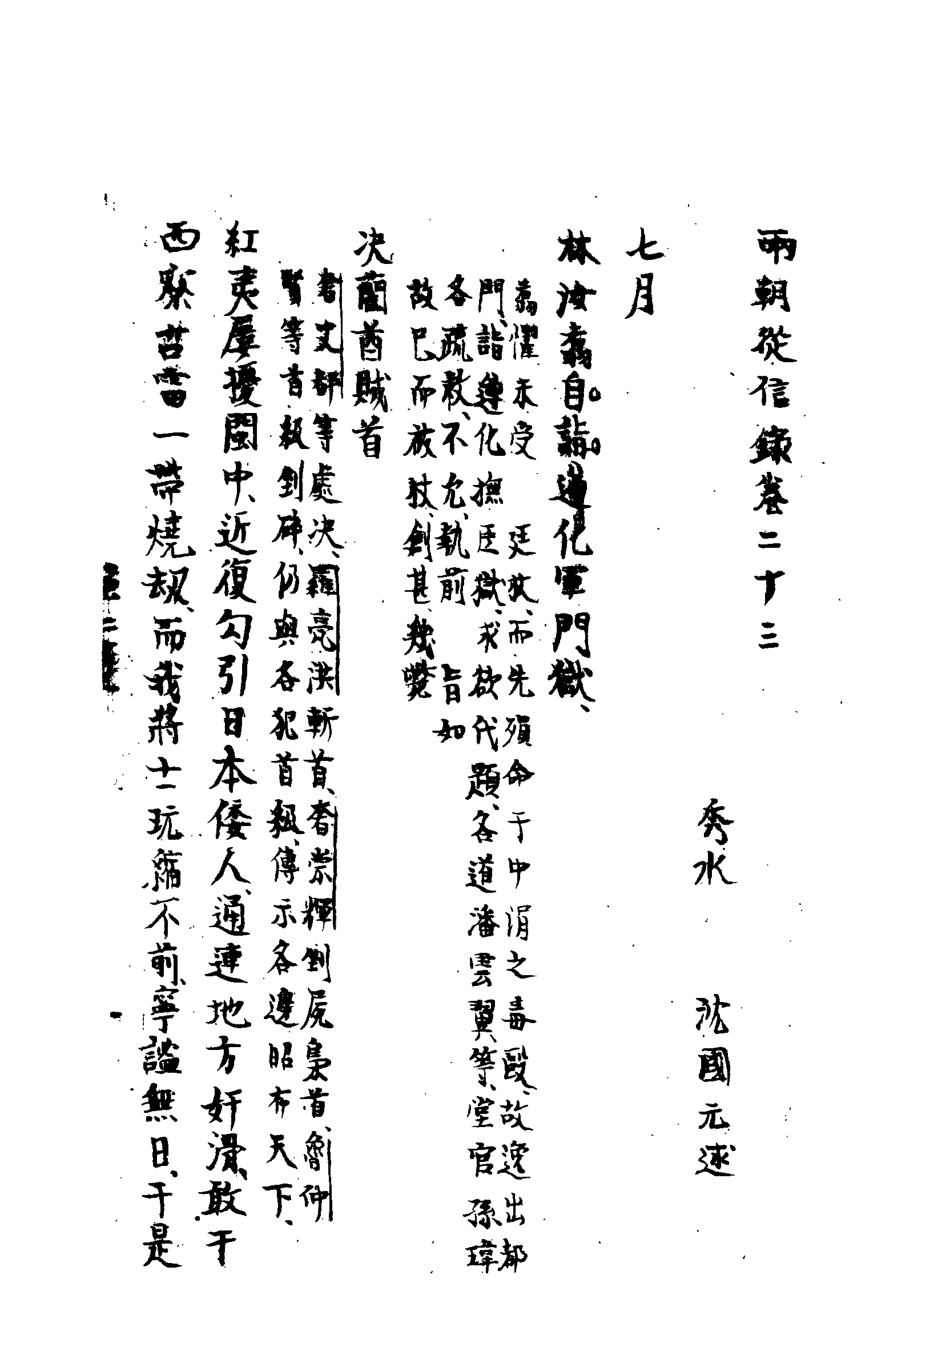 兩朝從信錄卷二十三
秀水 沈國元述
七月
林汝翥自詣遵化軍門獄、
翥懼未受 廷杖、而先殞命于中涓之毒毆、故逸出都
門、詣遵化撫臣獄、求欲代題、各道潘雲翼等、堂官孫瑋
各疏救、不允、執前 旨如
故已而被杖、創甚、幾斃
決藺酋賊首
書丈都等處決、羅亮洪斬首、奢崇輝剉屍梟首、喬仲
賢等首級剉碎、仍與各犯首級、傳示各邊昭布天下、
紅夷屢擾閩中、近復勾引日本倭人、通連地方奸滑、敢于
西寮咨雷一帶燒刼、而我將士玩縮不前、寧謐無日、于是